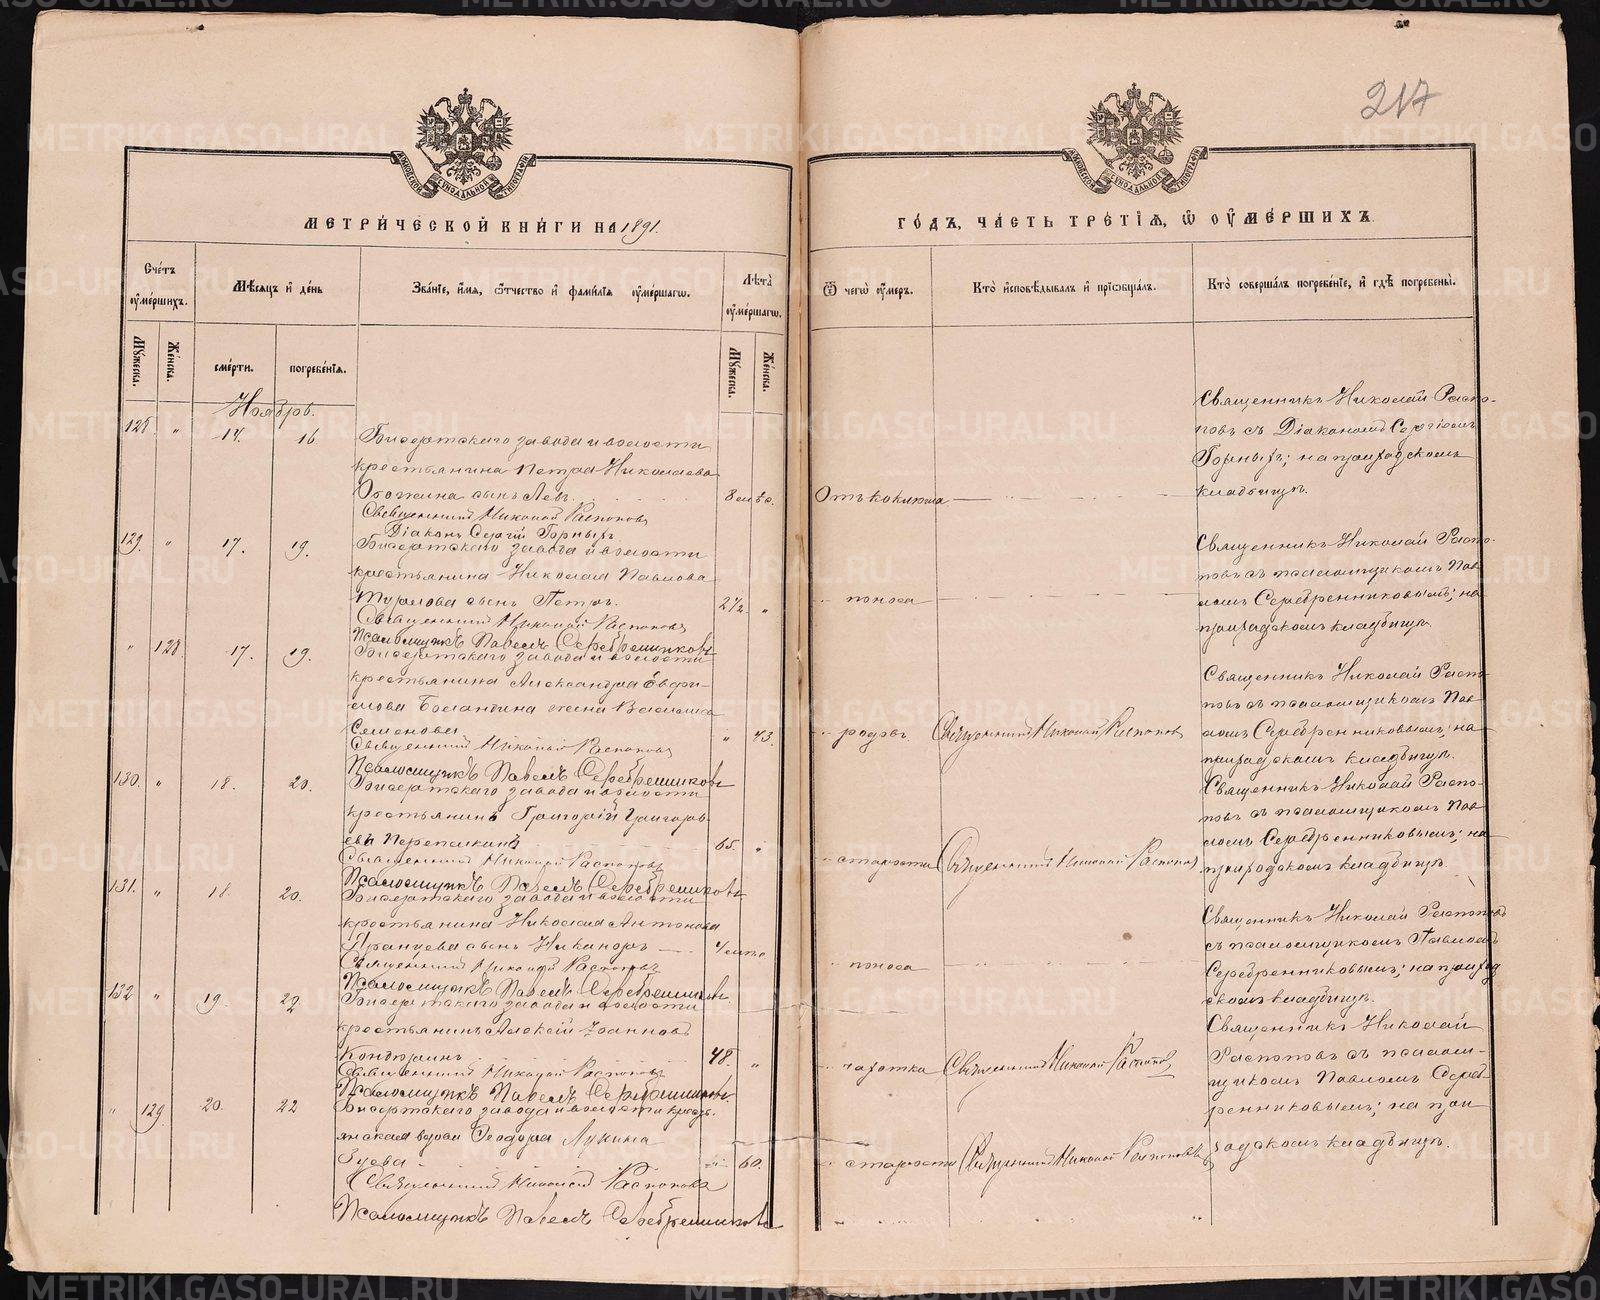 217
МЕТРИЧЕСКОЙ КНИГИ НА 1891.
ГОДЪ, ЧАСТЬ ТРЕТІЯ, Ѿ ОУМЕРШИХЪ.
Счетъ оумершихъ.
Мѣсяцъ и день
Званіе, имя, отчество и фамилія оумершагω.
Лѣта оумершагω.
Ѿ чегω оумеръ.
Кто исповѣдывалъ и пріобщалъ.
Кто совершалъ погребеніе, и гдѣ погребены.
Мужеска.
Женска.
смерти.
погребенія.
Мужеска.
Женска.
Ноябрь.
128 " 14. 16.
Бисертскаго завода и волости
крестьянина Петра Николаева
сынъ Левъ. 8 мѣс.
Отъ коклюша
Священникъ Николай Распоповъ
Діаконъ Сергій Горныхъ
Священникъ Николай Распо-
повъ съ Діакономъ Сергіемъ
Горныхъ; на приходскомъ
кладбищѣ.
129. " 17. 19.
Бисертскаго завода и волости
крестьянина Николая Павлова
сынъ Петръ. 2½ "
" поноса
Священникъ Николай Распоповъ
Псаломщикъ Павелъ Серебренниковъ
Священникъ Николай Распо-
повъ съ псаломщикомъ Пав-
ломъ Серебренниковымъ; на
приходскомъ кладбищѣ.
" 128 17. 19.
Бисертскаго завода и волости
крестьянина Александра Евфи-
мова жена Василиса
Семенова " 43.
" родовъ Священникъ Николай Распоповъ
Священникъ Николай Распоповъ
Псаломщикъ Павелъ Серебренниковъ
Священникъ Николай Распо-
повъ съ псаломщикомъ Пав-
ломъ Серебренниковымъ; на
приходскомъ кладбищѣ.
130. " 18. 20.
Бисертскаго завода и волости
крестьянинъ Григорій Григорь-
евъ 65. "
" старости Священникъ Николай Распоповъ
Священникъ Николай Распоповъ
Псаломщикъ Павелъ Серебренниковъ
Священникъ Николай Распо-
повъ съ псаломщикомъ Пав-
ломъ Серебренниковымъ; на
приходскомъ кладбищѣ.
131. " 18. 20.
Бисертскаго завода и волости
крестьянина Николая Антонова
сынъ Никаноръ
" поноса
Священникъ Николай Распоповъ
Псаломщикъ Павелъ Серебренниковъ
Священникъ Николай Распоповъ
съ псаломщикомъ Павломъ
Серебренниковымъ; на приход-
скомъ кладбищѣ.
132 " 19. 22.
Бисертскаго завода и волости
крестьянинъ Алексѣй Іоанновъ
Кондюринъ 48. "
" чахотка Священникъ Николай Распоповъ
Священникъ Николай Распоповъ
Псаломщикъ Павелъ Серебренниковъ
Священникъ Николай
Распоповъ съ псалом-
щикомъ Павломъ Сереб-
ренниковымъ; на при-
ходскомъ кладбищѣ.
" 129 20. 22
Бисертскаго завода и волости кресть-
янская вдова Ѳеодора Лукина
Зуева 60.
" старости Священникъ Николай Распоповъ
Священникъ Николай Распоповъ
Псаломщикъ Павелъ Серебренниковъ
METRIKI.GASO-URAL.RU